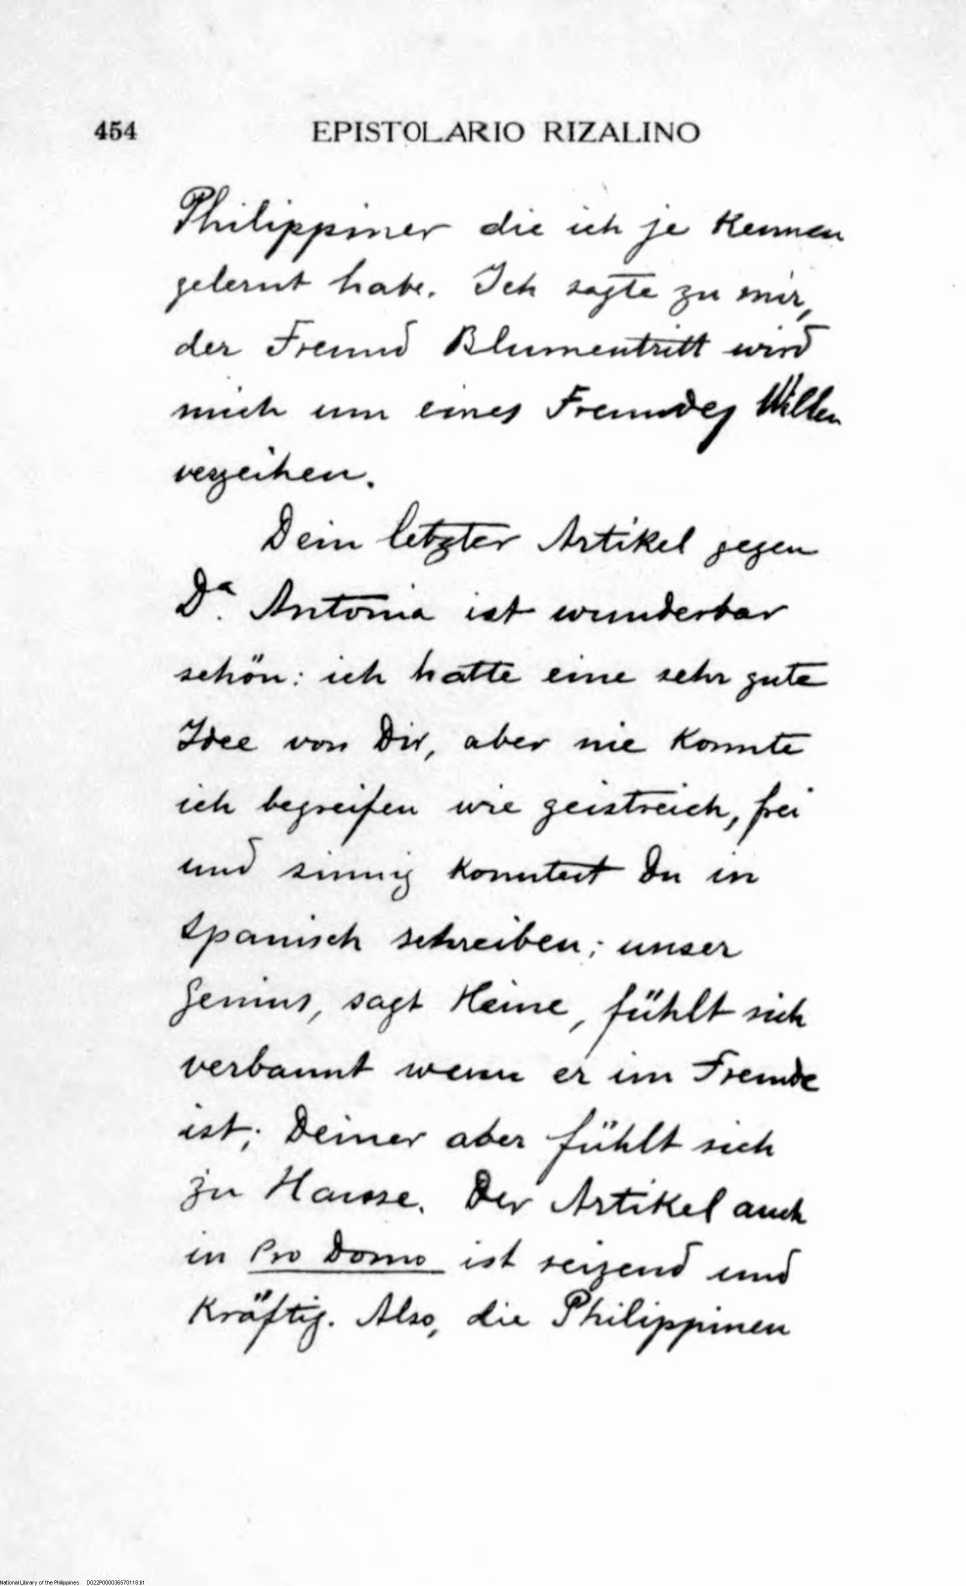 454 EPISTOLARIO RIZALINO
Philippiner die ich je kennen
gelernt habe. Ich sagte zu mir,
der Freund Blumentritt wird
mich um eines Freundes Willen
verzeihen.
Dein letzter Artikel gegen
Dª. Antonia ist wunderbar
schön: ich hatte eine sehr gute
Idee von Dir, aber nie konnte
ich begreifen wie geistreich, frei
und sinnig konntest Du in
Spanisch schreiben; unser
Genius, sagt Heine, fühlt sich
verbannt wenn er im Fremde
ist; Deiner aber fühlt sich
zu Hause. Der Artikel auch
in Pro Domo ist reizend und
Kräftig. Also, die Philippinen
National Library of the Philippines